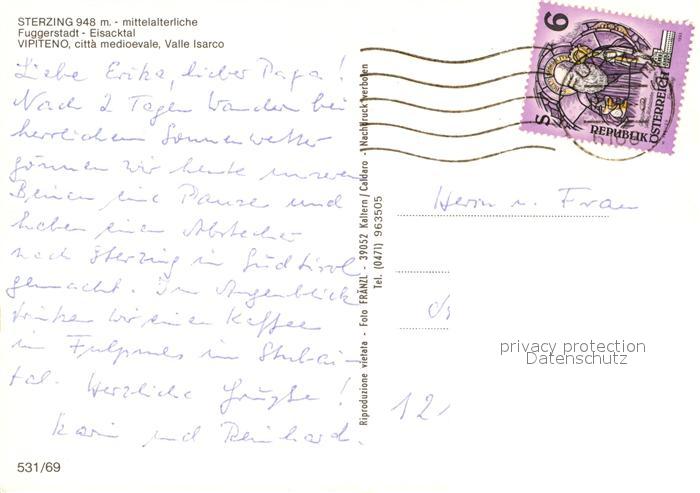 STERZING 948 m. - mittelalterliche
Fuggerstadt - Eisacktal
VIPITENO, città medioevale, Valle Isarco
Liebe Erika, lieber Papa!
Nach 2 Tagen Wandern bei
herrlichem Sonnenwetter
gönnen wir heute unseren
Beinen eine Pause und
haben einen Abstecher
nach Sterzing in Südtirol
gemacht. Im Augenblick
trinken wir einen Kaffee
in Fulpmes im Stubai-
tal. Herzliche Grüße!
Karin und Reinhard.
531/69
Riproduzione vietata - Foto FRÄNZL - 39052 Kaltern / Caldaro - Nachdruck verboten
Tel. (0471) 963505
S 6
REPUBLIK ÖSTERREICH
Herrn u. Frau
12
privacy protection
Datenschutz